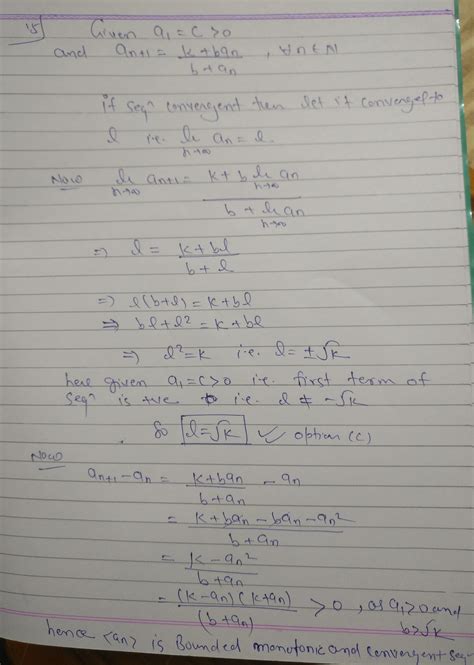 15) Given a₁ = c > 0
and aₙ₊₁ = (k + baₙ)/(b + aₙ) , ∀ n ∈ N
if seqⁿ convergent then let it converges to
l i.e. lim_{n→∞} aₙ = l.
Now lim_{n→∞} aₙ₊₁ = (k + b lim_{n→∞} aₙ)/(b + lim_{n→∞} aₙ)
⇒ l = (k + bl)/(b + l)
⇒ l(b+l) = k + bl
⇒ bl + l² = k + bl
⇒ l² = k i.e. l = ±√k
here given a₁ = c > 0 i.e. first term of
seqⁿ is +ve i.e. l ≠ -√k
So l = √k ✓ option (C)
Now
aₙ₊₁ - aₙ = (k + baₙ)/(b + aₙ) - aₙ
= (k + baₙ - baₙ - aₙ²)/(b + aₙ)
= (k - aₙ²)/(b + aₙ)
= (k - aₙ)(k + aₙ)/(b + aₙ) > 0 , as a₁ > 0 and
b > √k
hence <aₙ> is Bounded monotonic and convergent seqⁿ